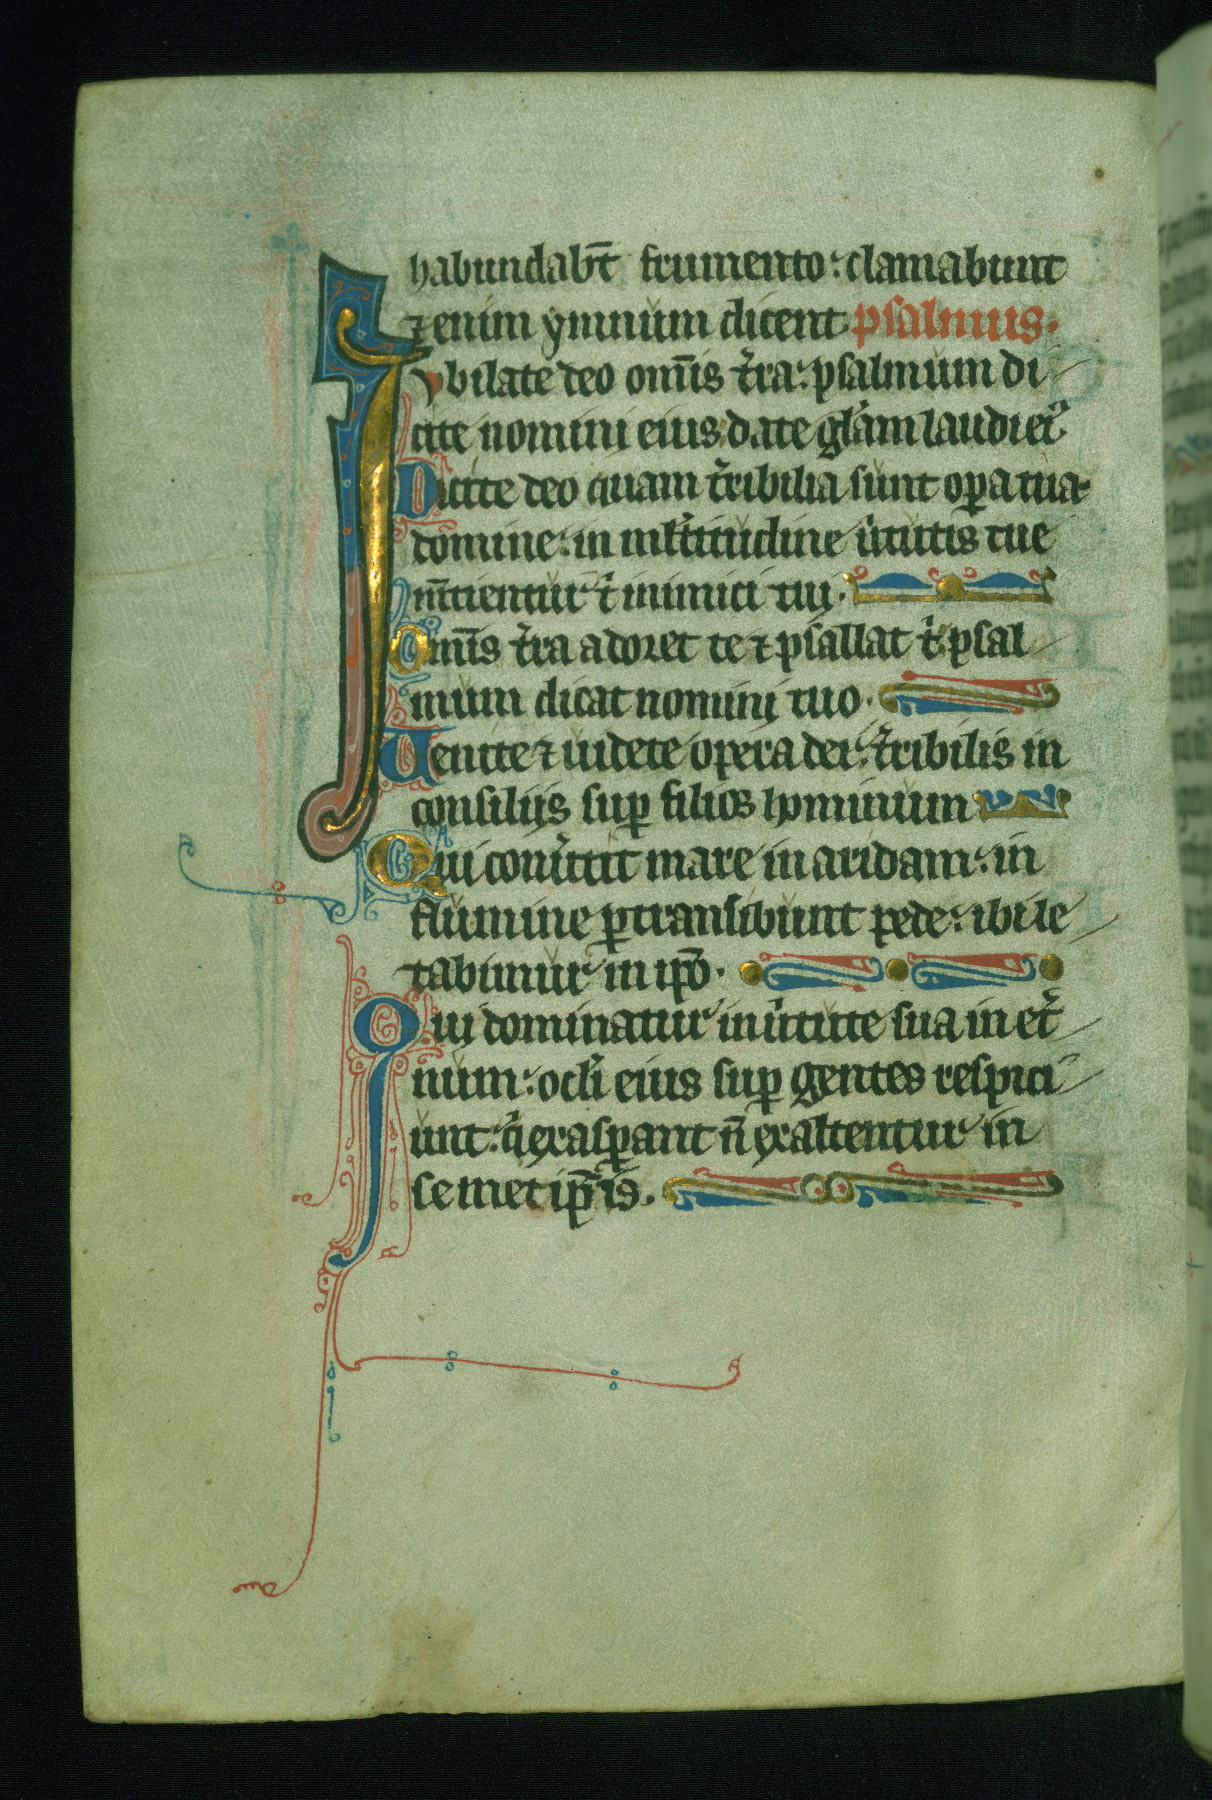 habundab̄t frumento: clamabunt
⁊ enim ymnum dicent psalmus.
Jubilate deo om̄is t̉ra: psalmum di
cite nomini eius date gl̉am laudi ei᷒
Dicite deo quam t̉ribilia sunt oꝑa tua
domine: in ml̉titudine ủtutis tue
m̄tientur t̉ inimici tui.
Omīs t̉ra adoret te ⁊ psallat t̉: psal
mum dicat nomini tuo.
Uenite ⁊ uidete opera dei: t̉ribilis in
consilijs suꝑ filios hominum
Qui conủtit mare in aridam: in
flumine ꝑtransibunt pede: ibi le
tabimur in ip̄o.
Qui dominatur in ủtute sua in et̉
num: oc̉li eius suꝑ gentes respici
unt: q̉ exasꝑant n̄ exaltentur in
semetip̄is.